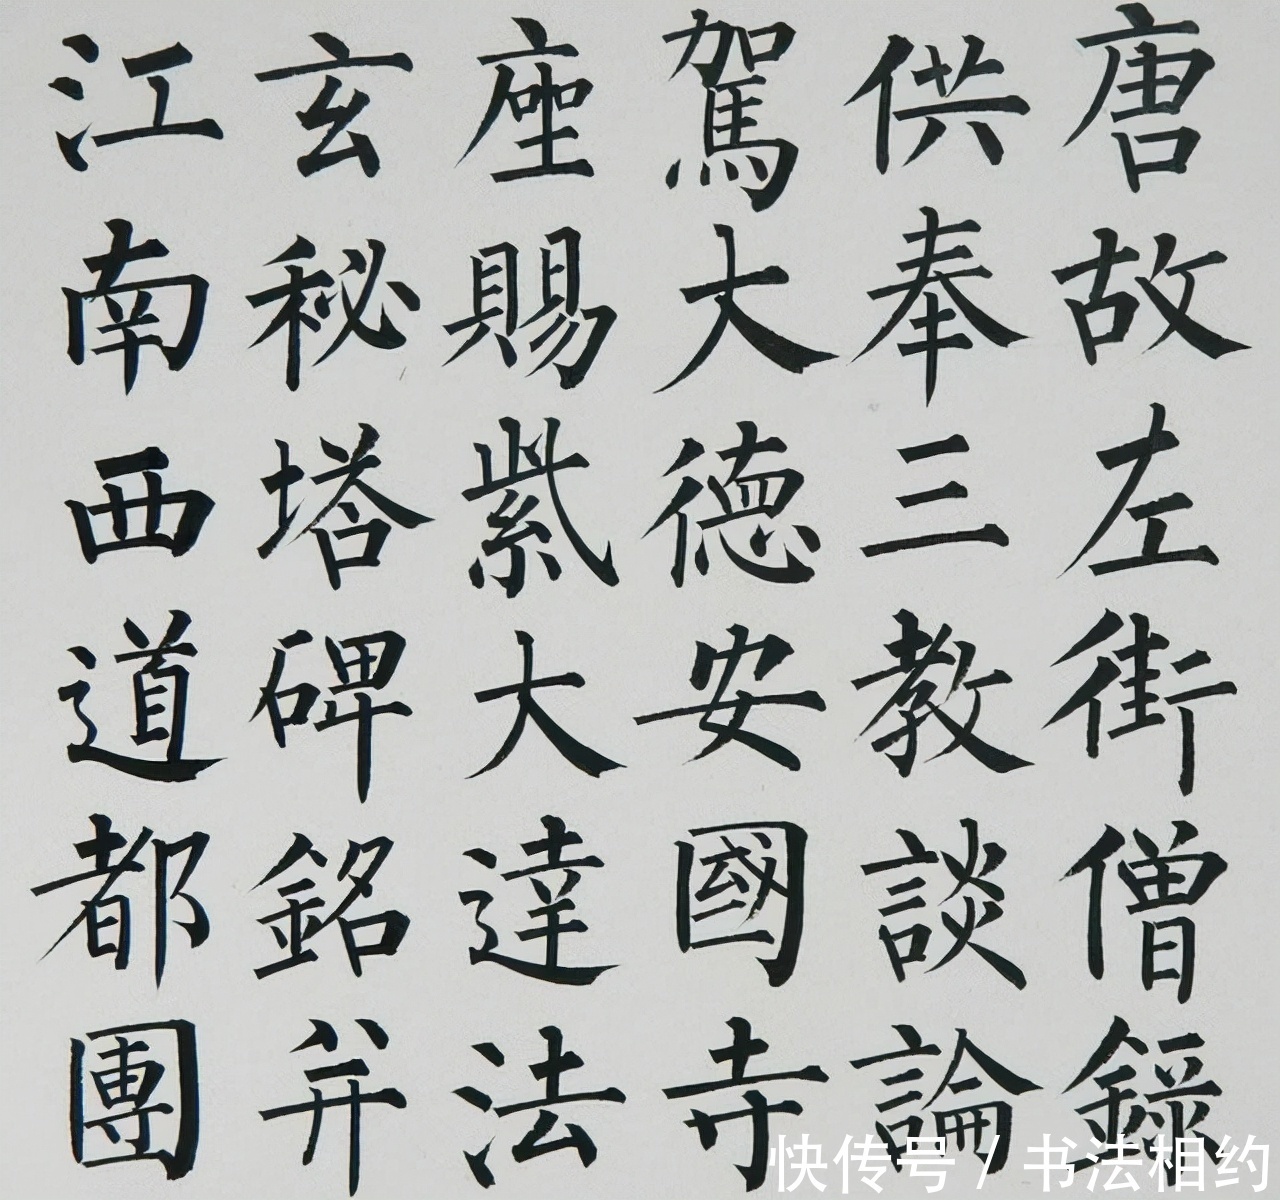 唐故左街僧録
供奉三教談論
駕大德安國寺
座賜紫大達法
玄秘塔碑銘并
江南西道都團
快传号 / 书法相约